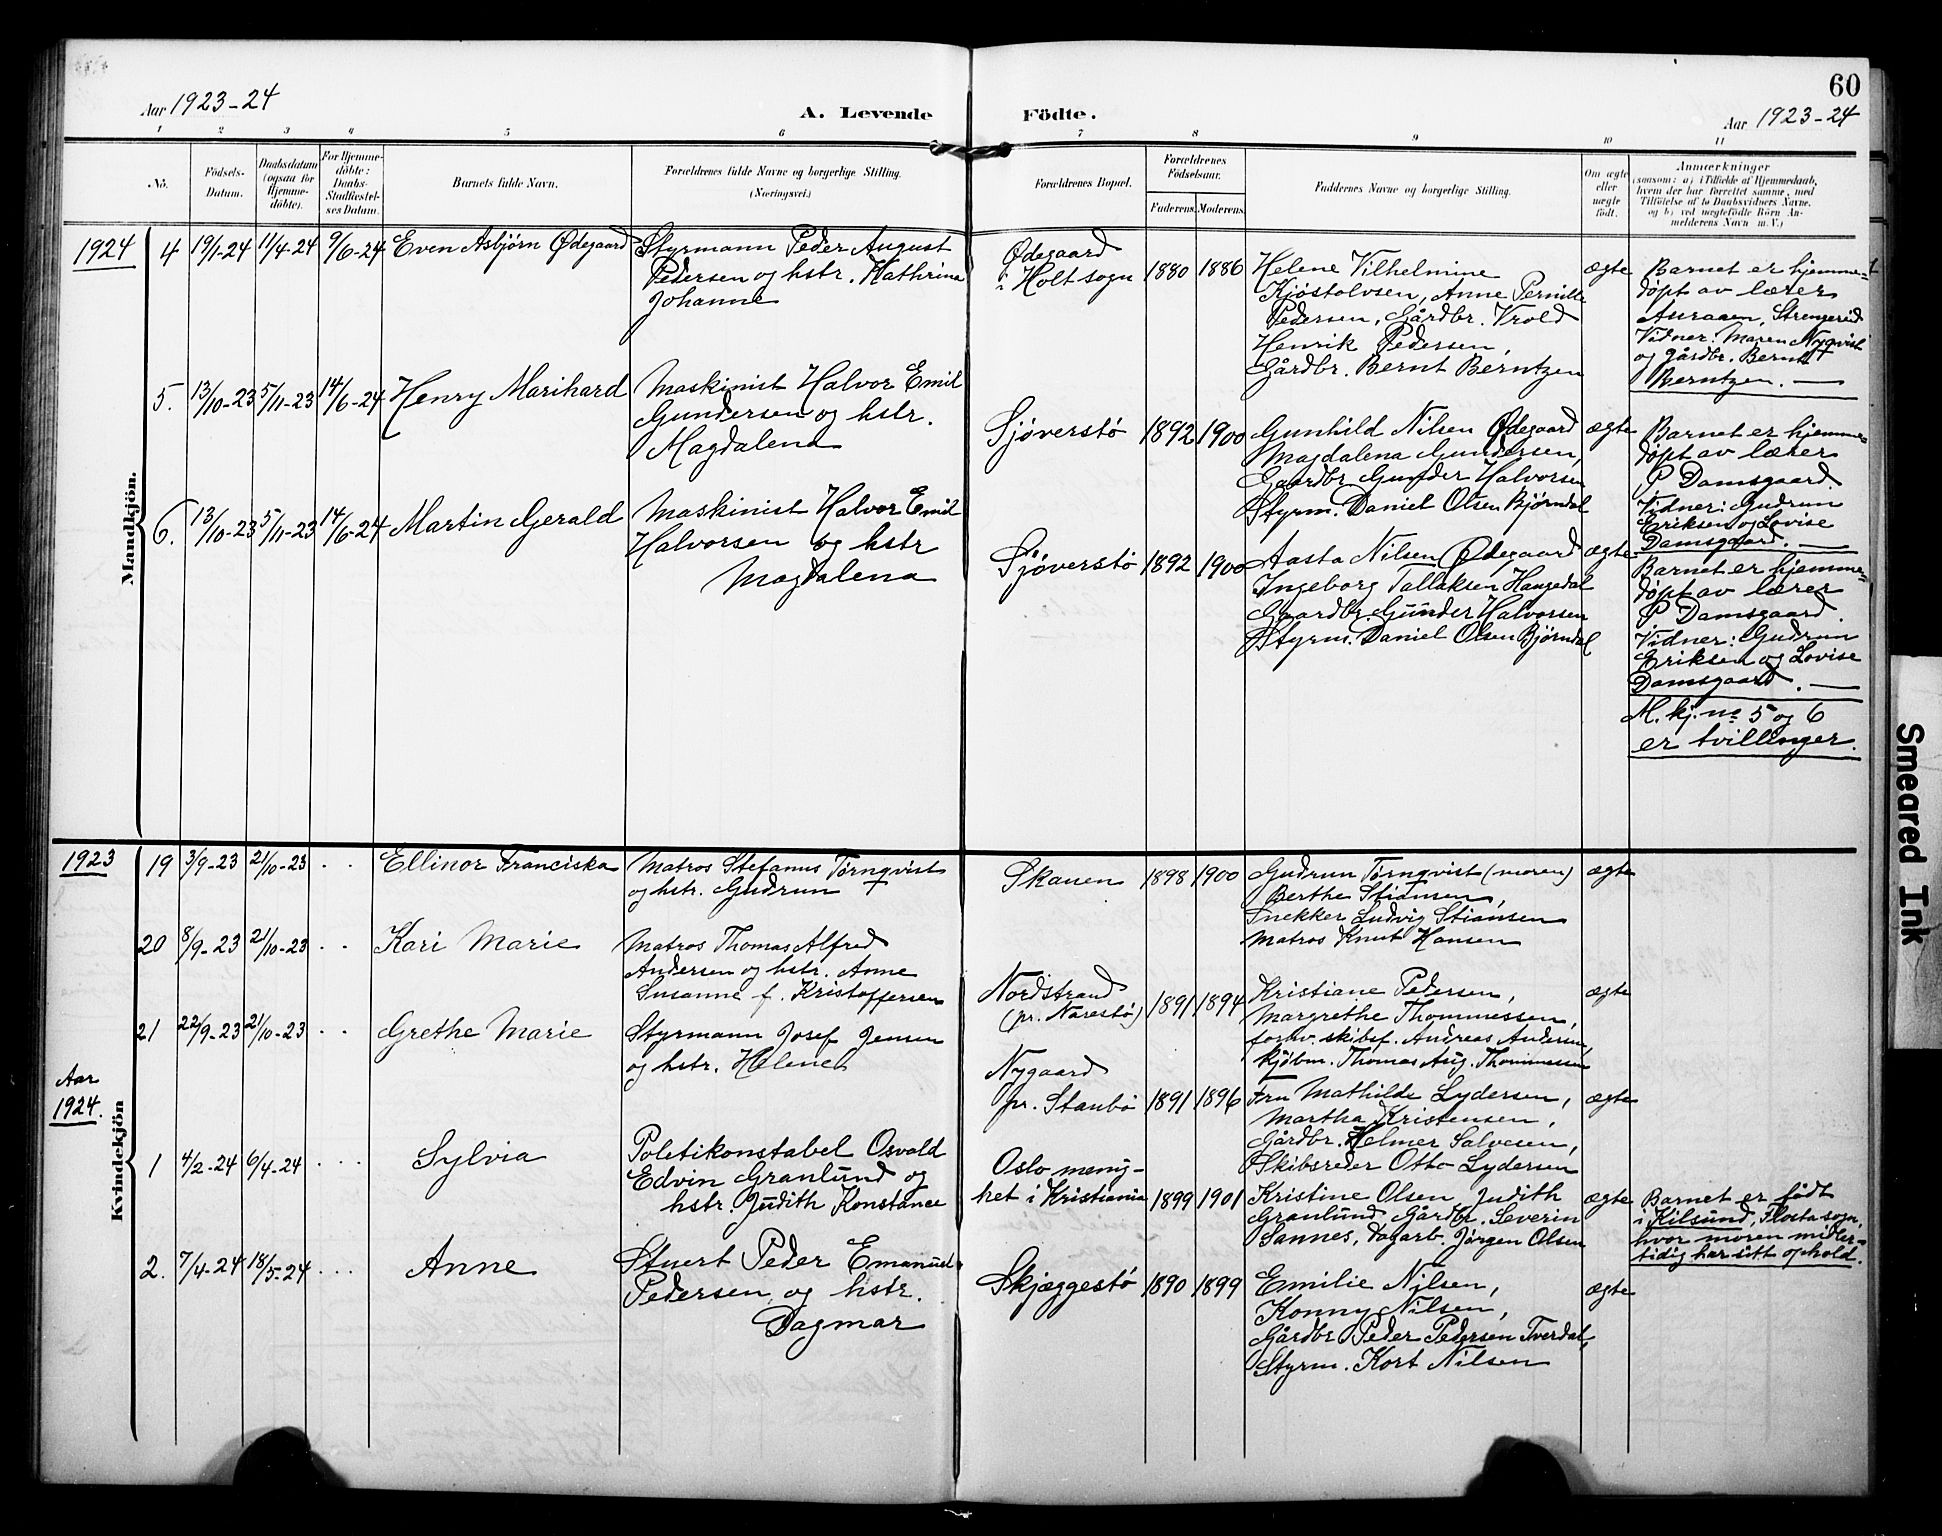 60
Aar 1923-24
A. Levende Födte.
Aar 1923-24
1 2 3 4 5 6 7 8 9 10 11
No.
Födsels-
Datum.
Daabsdatum
(ogsaa for
Hjemme-
döbte).
For Hjemme-
döbte:
Daabs-
Stadfæstel-
ses Datum.
Barnets fulde Navn.
Forældrenes fulde Navne og borgerlige Stilling.
(Næringsvei.)
Forældrenes Bopæl.
Forældrenes
Födselsaar.
Faderens. Moderens.
Faddernes Navne og borgerlige Stilling.
Om ægte
eller
uægte
født.
Anmærkninger
(saasom: a) i Tilfælde af Hjemmedaab,
hvem der har forrettet samme, med
Tilföielse af to Daabsvidners Navne,
og b) ved uægtefödte Börn An-
melderens Navn m. V.)
Mandkjön.
1924
4 19/1-24 11/4-24 9/6-24 Even Asbjørn Ødegaard
Styrmann Peder August
Pedersen og hstr. Kathrine
Johanne
Ødegaard
i Holt sogn
1880 1886
Helene Vilhelmine
Kjøstolvsen, Anne Pernille
Pedersen, Gårdbr. Vrold
Henrik Pedersen,
Gårdbr. Bernt Berntzen
ægte
Barnet er hjemme-
døpt av lærer
Auraaen, Strengereid
Vidner: Maren Nyqvist
og gårdbr. Bernt
Berntzen. —
5. 13/10-23 5/11-23 14/6-24 Henry Marihard
Maskinist Halvor Emil
Gundersen og hstr.
Magdalena
Sjøverstø
1892 1900
Gunhild Nilsen Ødegaard
Magdalena Gundersen,
Gaardbr Gunder Halvorsen
Styrm. Daniel Olsen Bjørndal
ægte
Barnet er hjemme-
døpt av lærer
P Damsgaard.
Vidner: Gudrun
Eriksen og Lovise
Damsgaard. —
6. 13/10-23 5/11-23 14/6-24 Martin Gerald
Maskinist Halvor Emil
Halvorsen og hstr
Magdalena
Sjøverstø
1892 1900
Aasta Nilsen Ødegaard
Ingeborg Tallaksen Haugedal
Gaardbr. Gunder Halvorsen
Styrm. Daniel Olsen Bjørndal
ægte
Barnet er hjemme-
døpt av lærer
P Damsgaard.
Vidner: Gudrun
Eriksen og Lovise
Damsgaard. —
M. kj. no 5 og 6
er tvillinger.
Kvindekjön
1923
19 3/9-23 21/10-23 . . Ellinor Franciska
Matros Stefanus Tørnqvist
og hstr. Gudrun
Skauen
1898 1900
Gudrun Tørnqvist (moren)
Berthe Stiansen,
Snekker Ludvig Stiansen
Matros Knut Hansen
ægte
20 8/9-23 21/10-23 . . Kari Marie
Matros Thomas Alfred
Andersen og hstr. Anne
Susanne f. Kristoffersen
Nordstrand
(pr. Narestø)
1891 1894
Kristiane Pedersen,
Margrethe Thommessen,
forhv. skibsf. Andreas Andersen,
kjøbm. Thomas Aug. Thommessen
ægte
21 22/9-23 21/10-23 . . Grethe Marie
Styrmann Josef Jensen
og hstr. Helene
Nygaard
pr. Staubø
1891 1896
Fru Mathilde Lydersen,
Martha Kristensen,
Gårdbr. Helmer Salvesen,
Skibsreder Otto Lydersen
ægte
Aar
1924.
1 4/2-24 6/4-24 . . . Sylvia
Politikonstabel Osvald
Edvin Granlund og
hstr. Judith Konstance
Oslo menig-
het i Kristiania
1899 1901
Kristine Olsen, Judith
Granlund, Gårdbr. Severin
Sannes, Dagarb. Jørgen Olsen
ægte
Barnet er født
i Kilsund, Flosta sogn,
hvor moren midler-
tidig har sitt ophold.
2. 7/4-24 18/5-24 . . . Anne
Stuert Peder Emanuel
Pedersen og hstr.
Dagmar
Skjæggestø
1890 1899
Emilie Nilsen,
Konny Nilsen,
Gårdbr Peder Pedersen Tverdal,
Styrm. Kort Nilsen
ægte
Smeared Ink